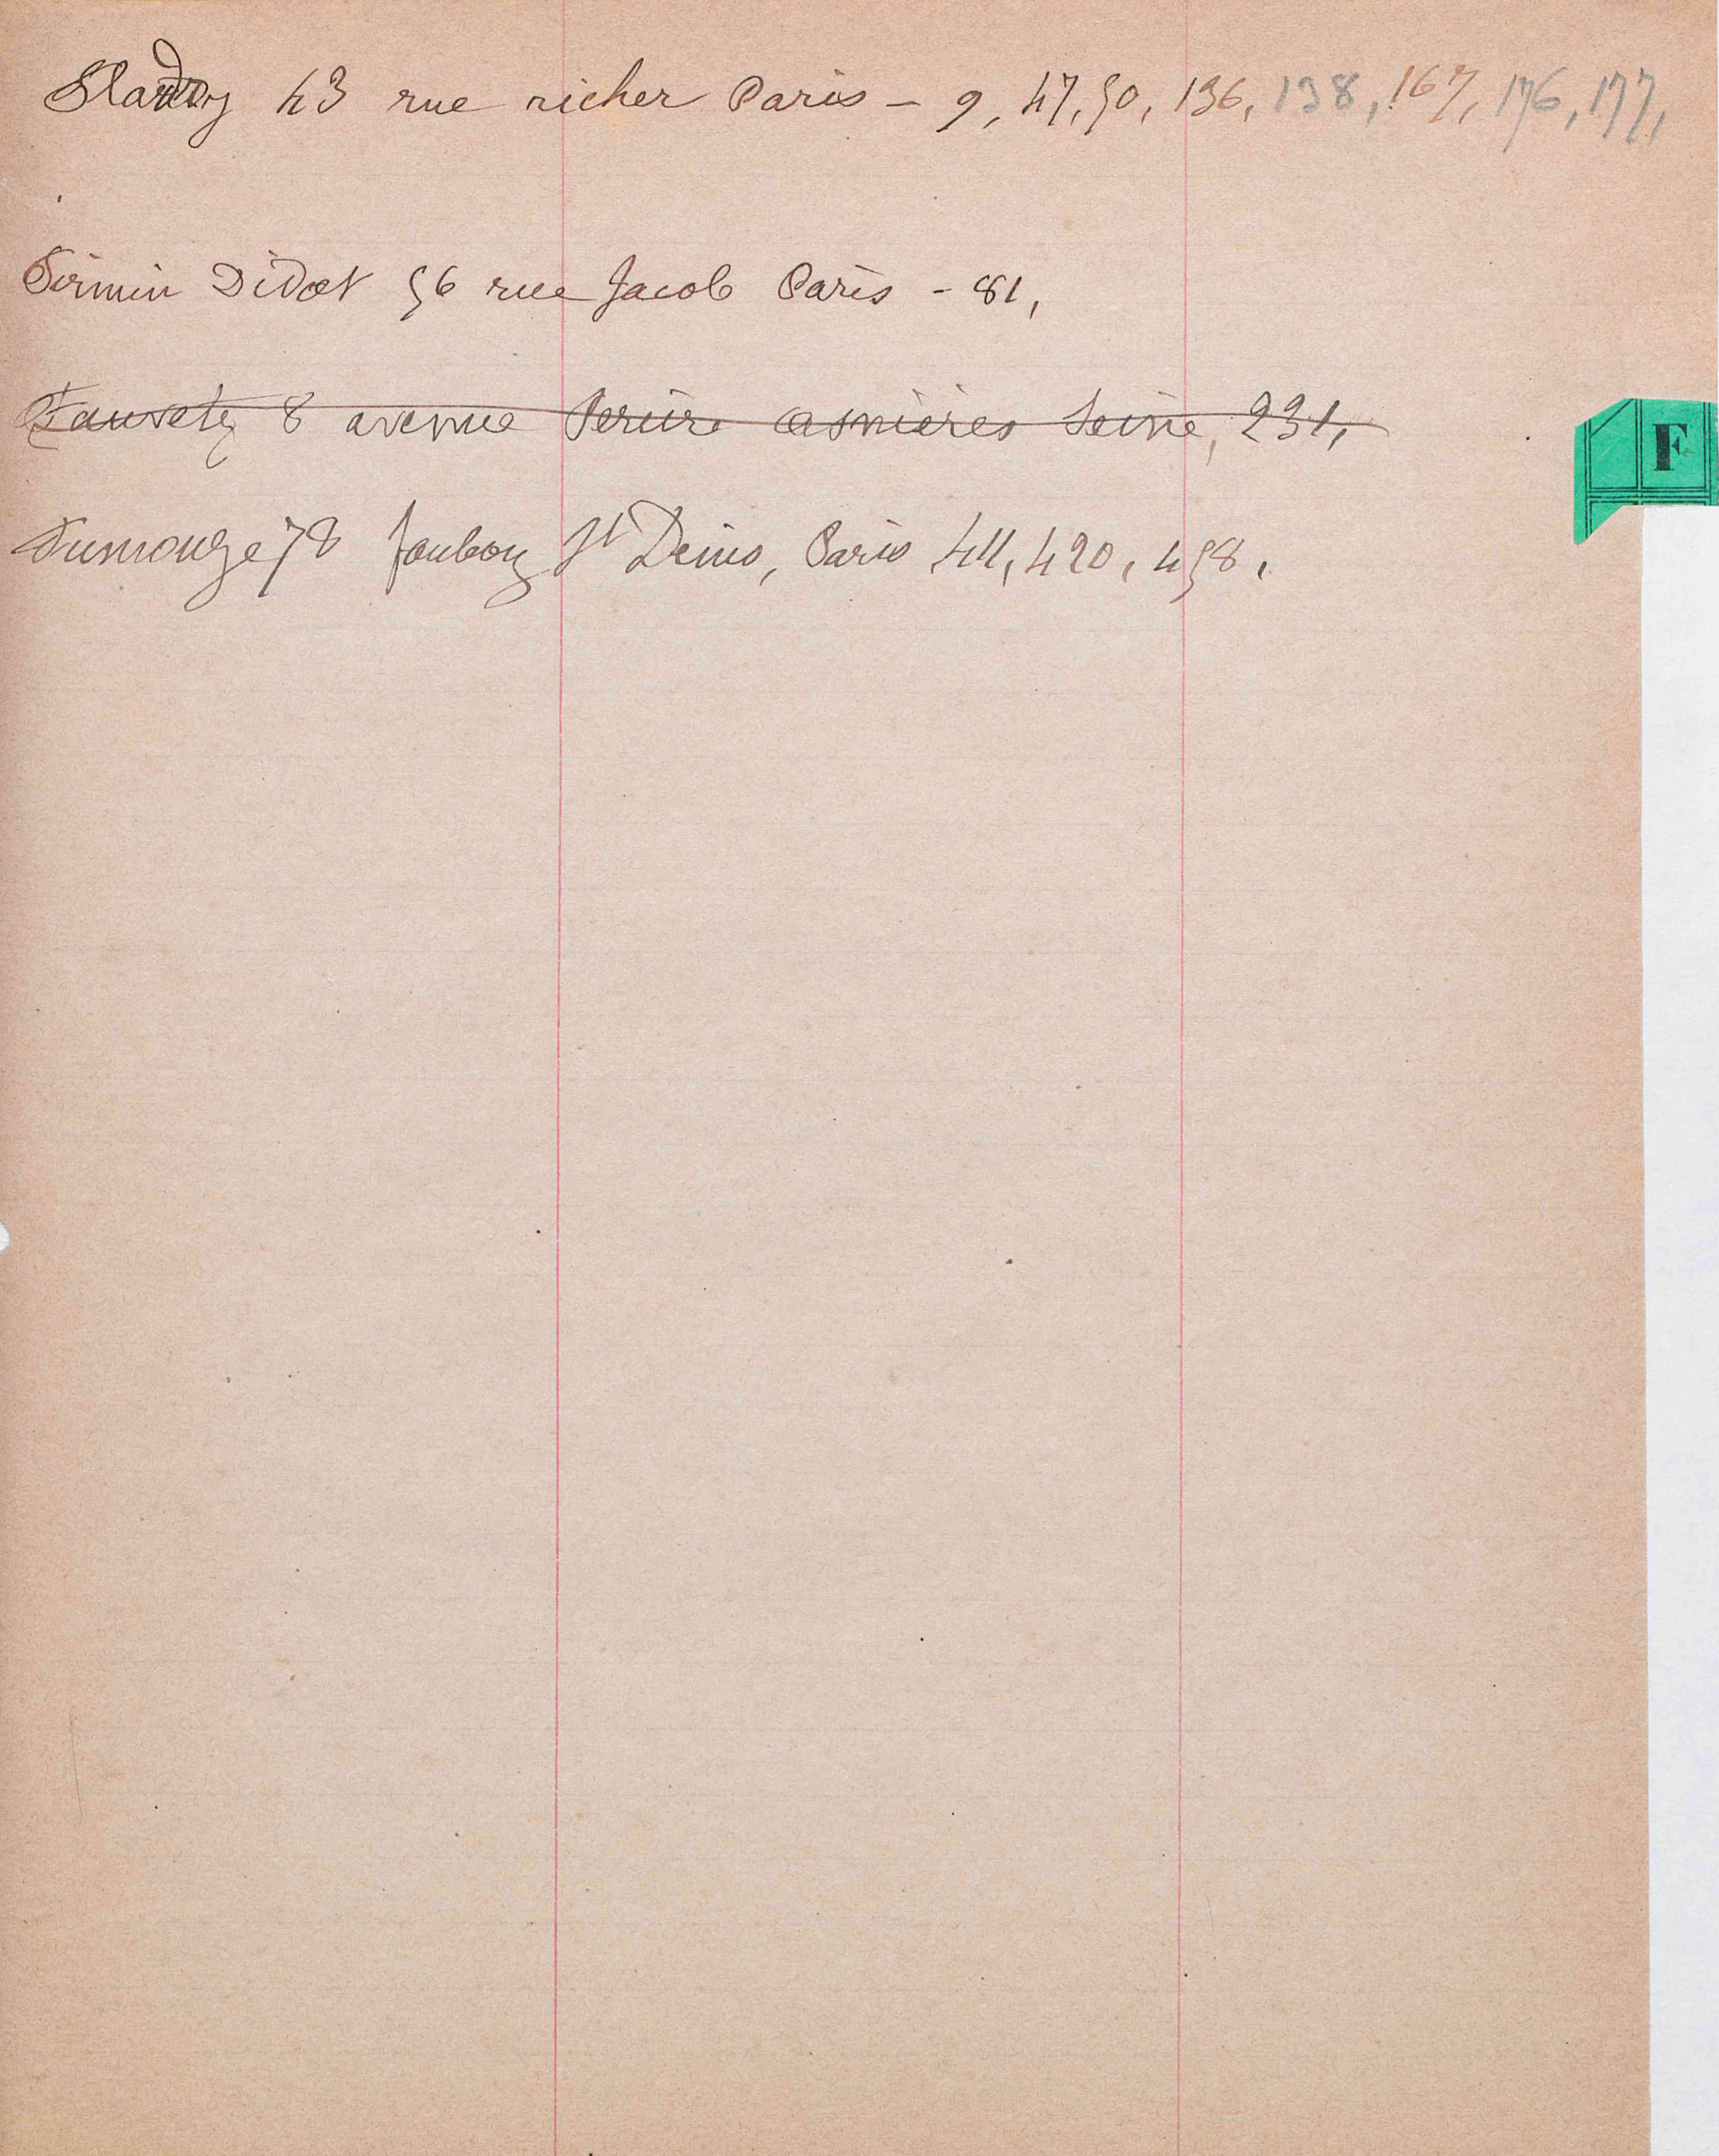 Flandry 43 rue richer Paris - 9, 47, 50, 136, 138, 167, 176, 177,
Firmin Didot 56 rue Jacob Paris - 81,
Fauvety 8 avenue Pereire asnières Seine, 231,
F
Fumouze 78 faubourg St Denis, Paris 411, 420, 458,